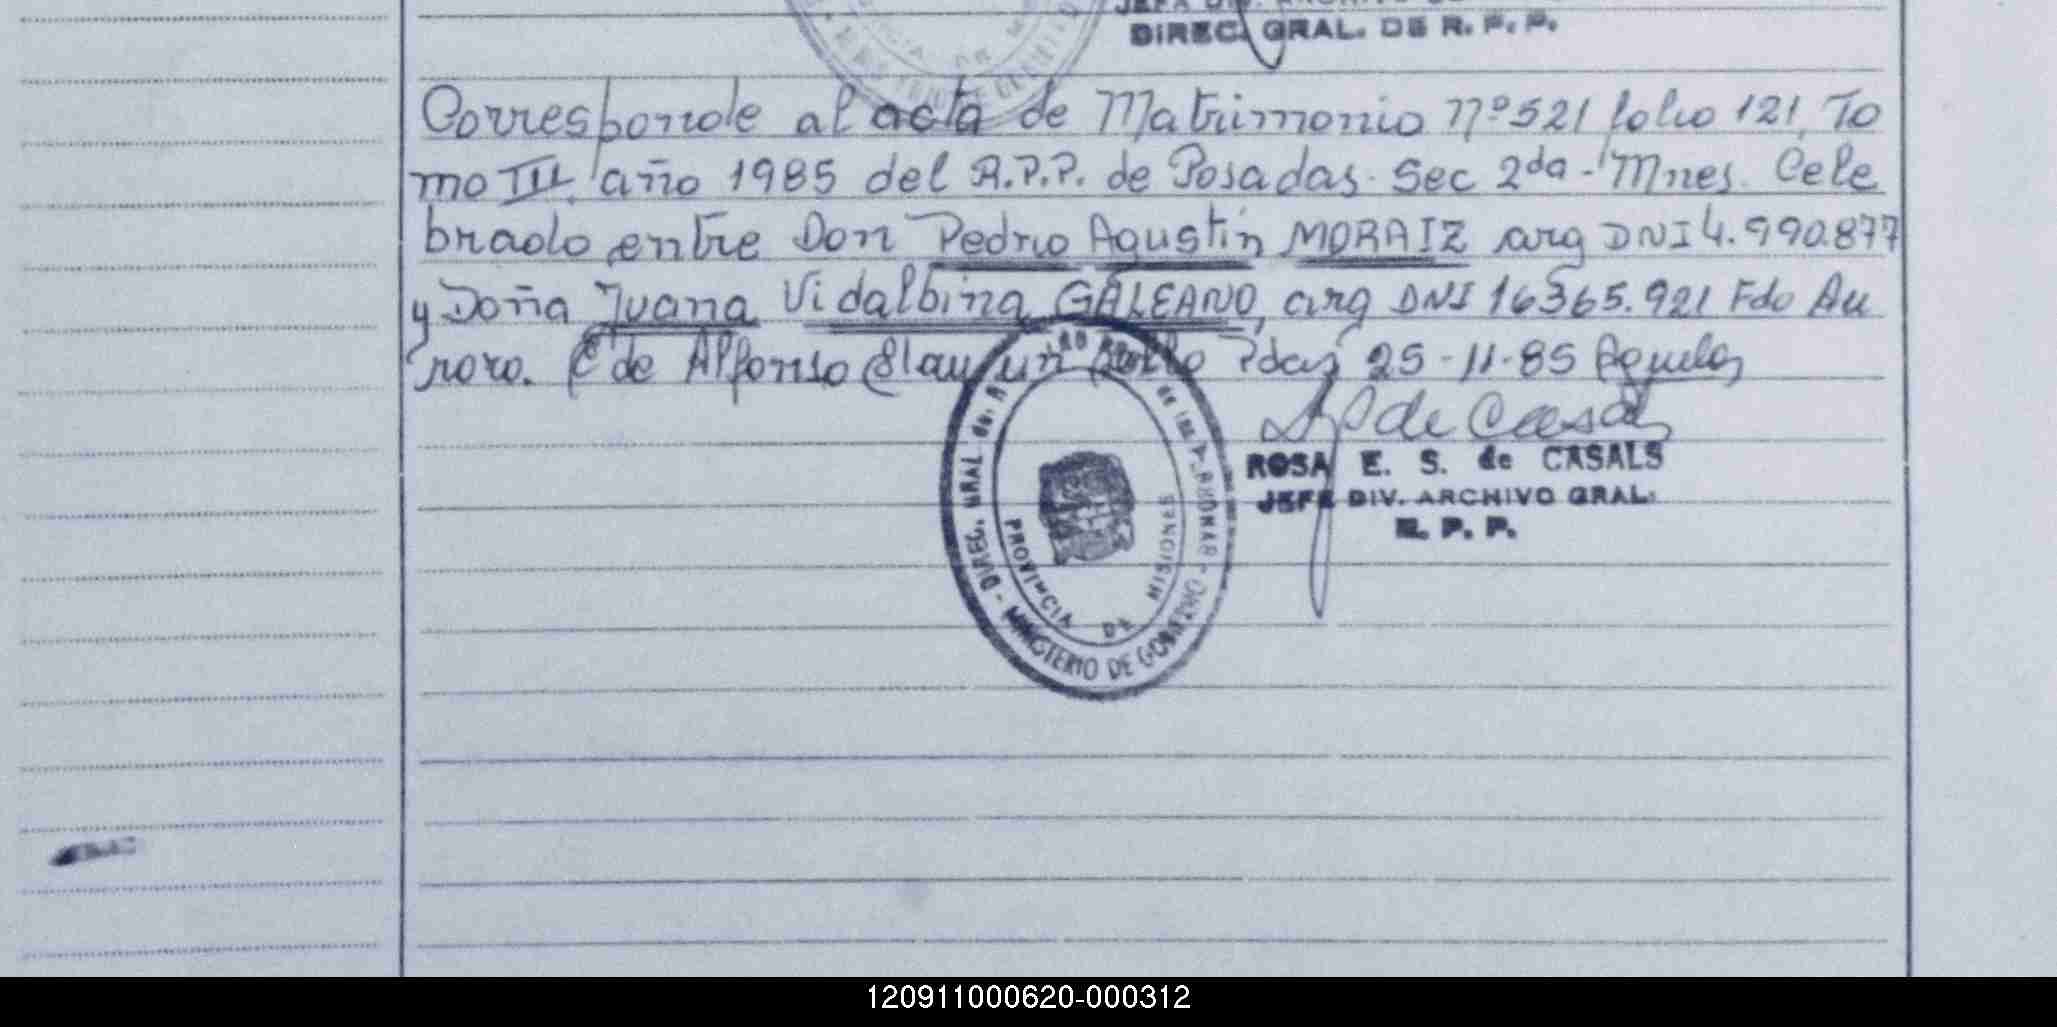 JEFA DIV. ARCHIVO
DIREC. GRAL. DE R. P. P.
Corresponde al acta de Matrimonio Nº 521 folio 121, To
mo III. año 1985 del R.P.P. de Posadas. Sec 2da - Mnes. Cele
brado entre Don Pedro Agustín MORAIZ arg DNI 4.990.877
y Doña Juana Vidalbina GALEANO, arg DNI 16365.921 Fdo Au
rora. E de Alfonso Hay un Sello Pdas 25-11-85
ROSA E. S. de CASALS
JEFE DIV. ARCHIVO GRAL.
R. P. P.
DIREC. GRAL. del de las PERSONAS - MINISTERIO DE GOBIERNO -
PROVINCIA DE MISIONES
120911000620-000312